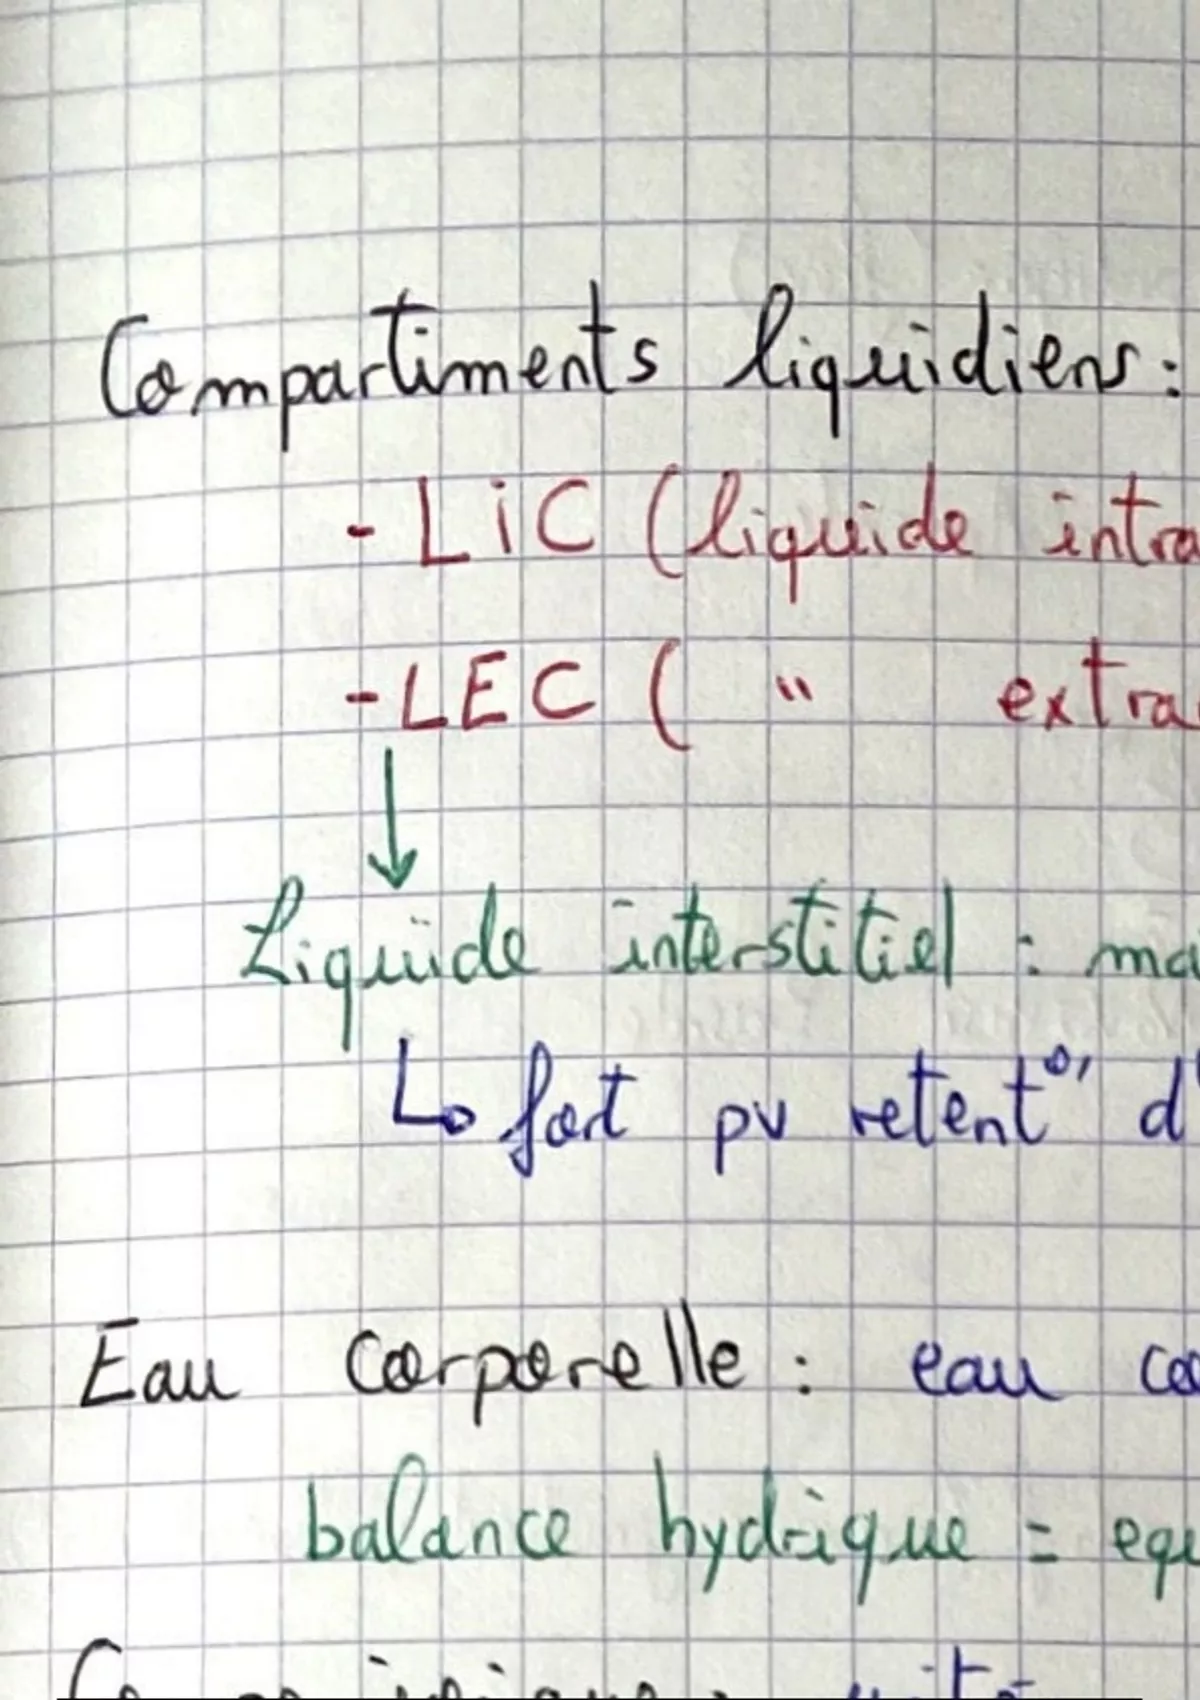 Compartiments liquidiens :
- LiC (liquide intra
- LEC ( " extra
↓
Liquide interstitiel : ma
↳ fort pv retent°, d'
Eau corporelle : eau co
balance hydrique = equ